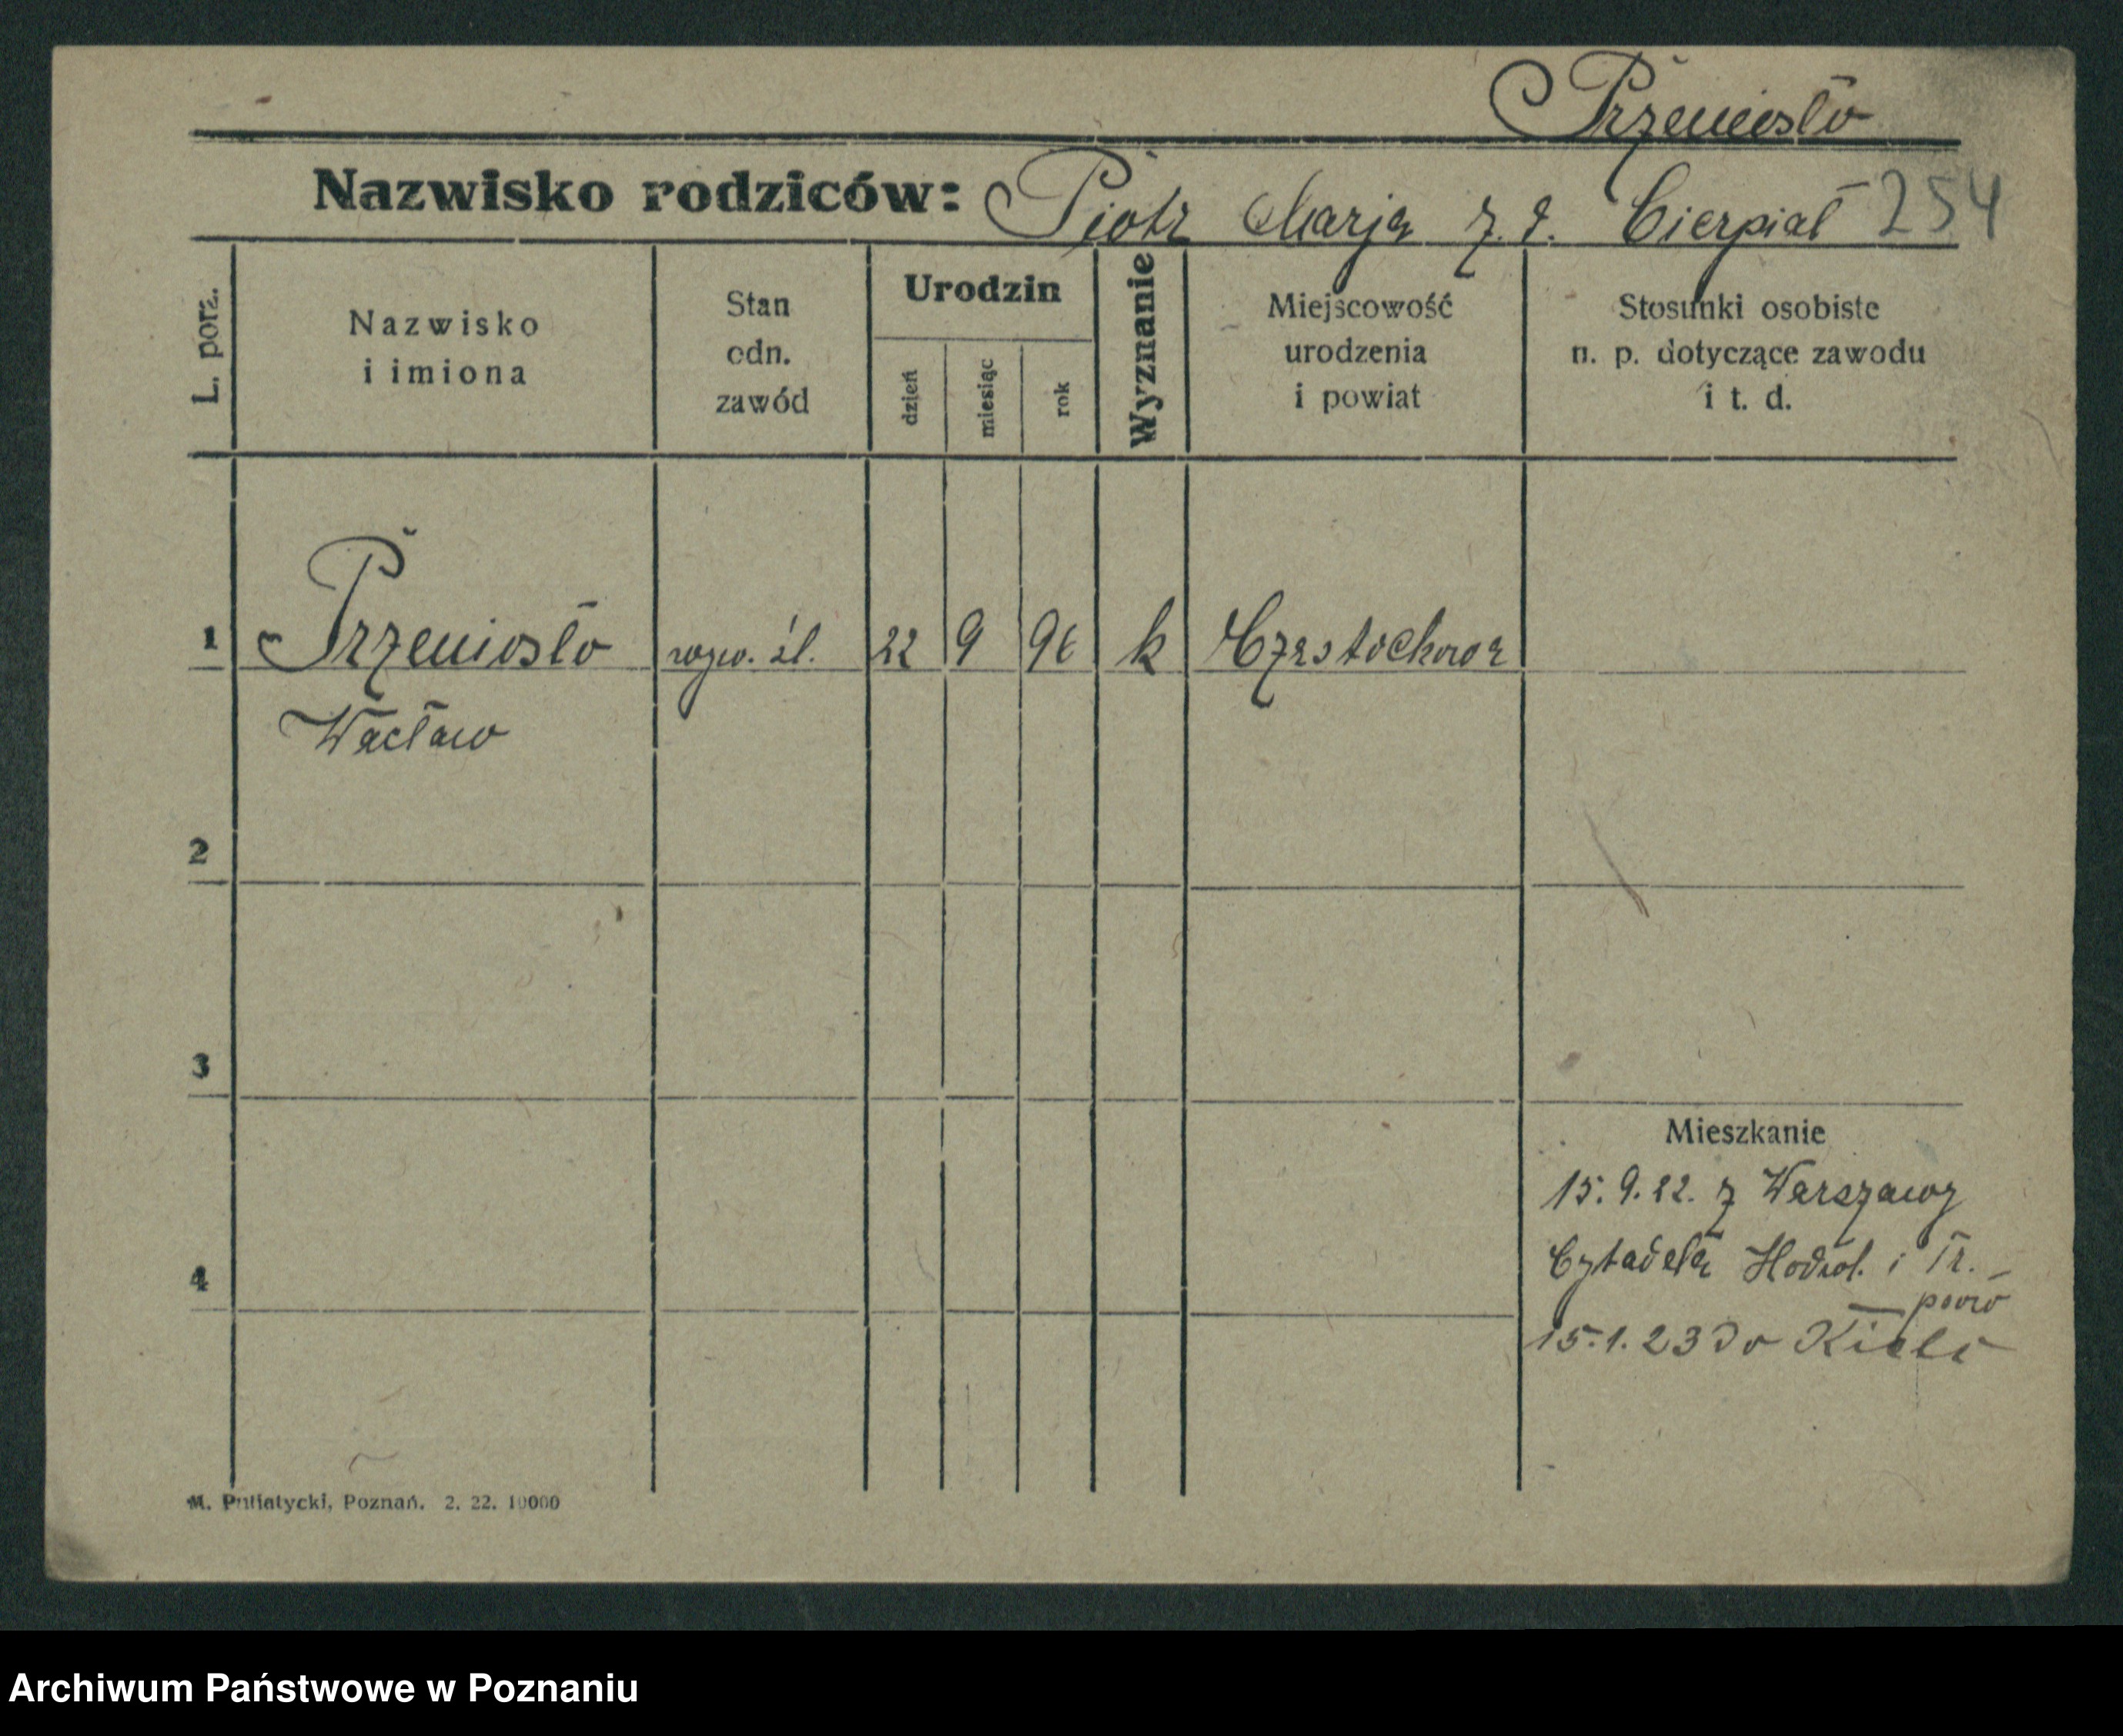 Przeniosło
Nazwisko rodziców: Piotr Marja z. d. Cierpiał 254
L. porz.
Nazwisko
i imiona
Stan
odn.
zawód
Urodzin
dzień
miesiąc
rok
Wyznanie
Miejscowość
urodzenia
i powiat
Stosunki osobiste
n. p. dotyczące zawodu
i t. d.
1 Przeniosło 22 9 96 k Częstochowa
Wacław
2
3
Mieszkanie
15. 9. 22. z Warszawy
4 Cytadela i Tr.
15. 1. 23 do Kielc
M. Putiatycki, Poznań. 2. 22. 10000
Archiwum Państwowe w Poznaniu